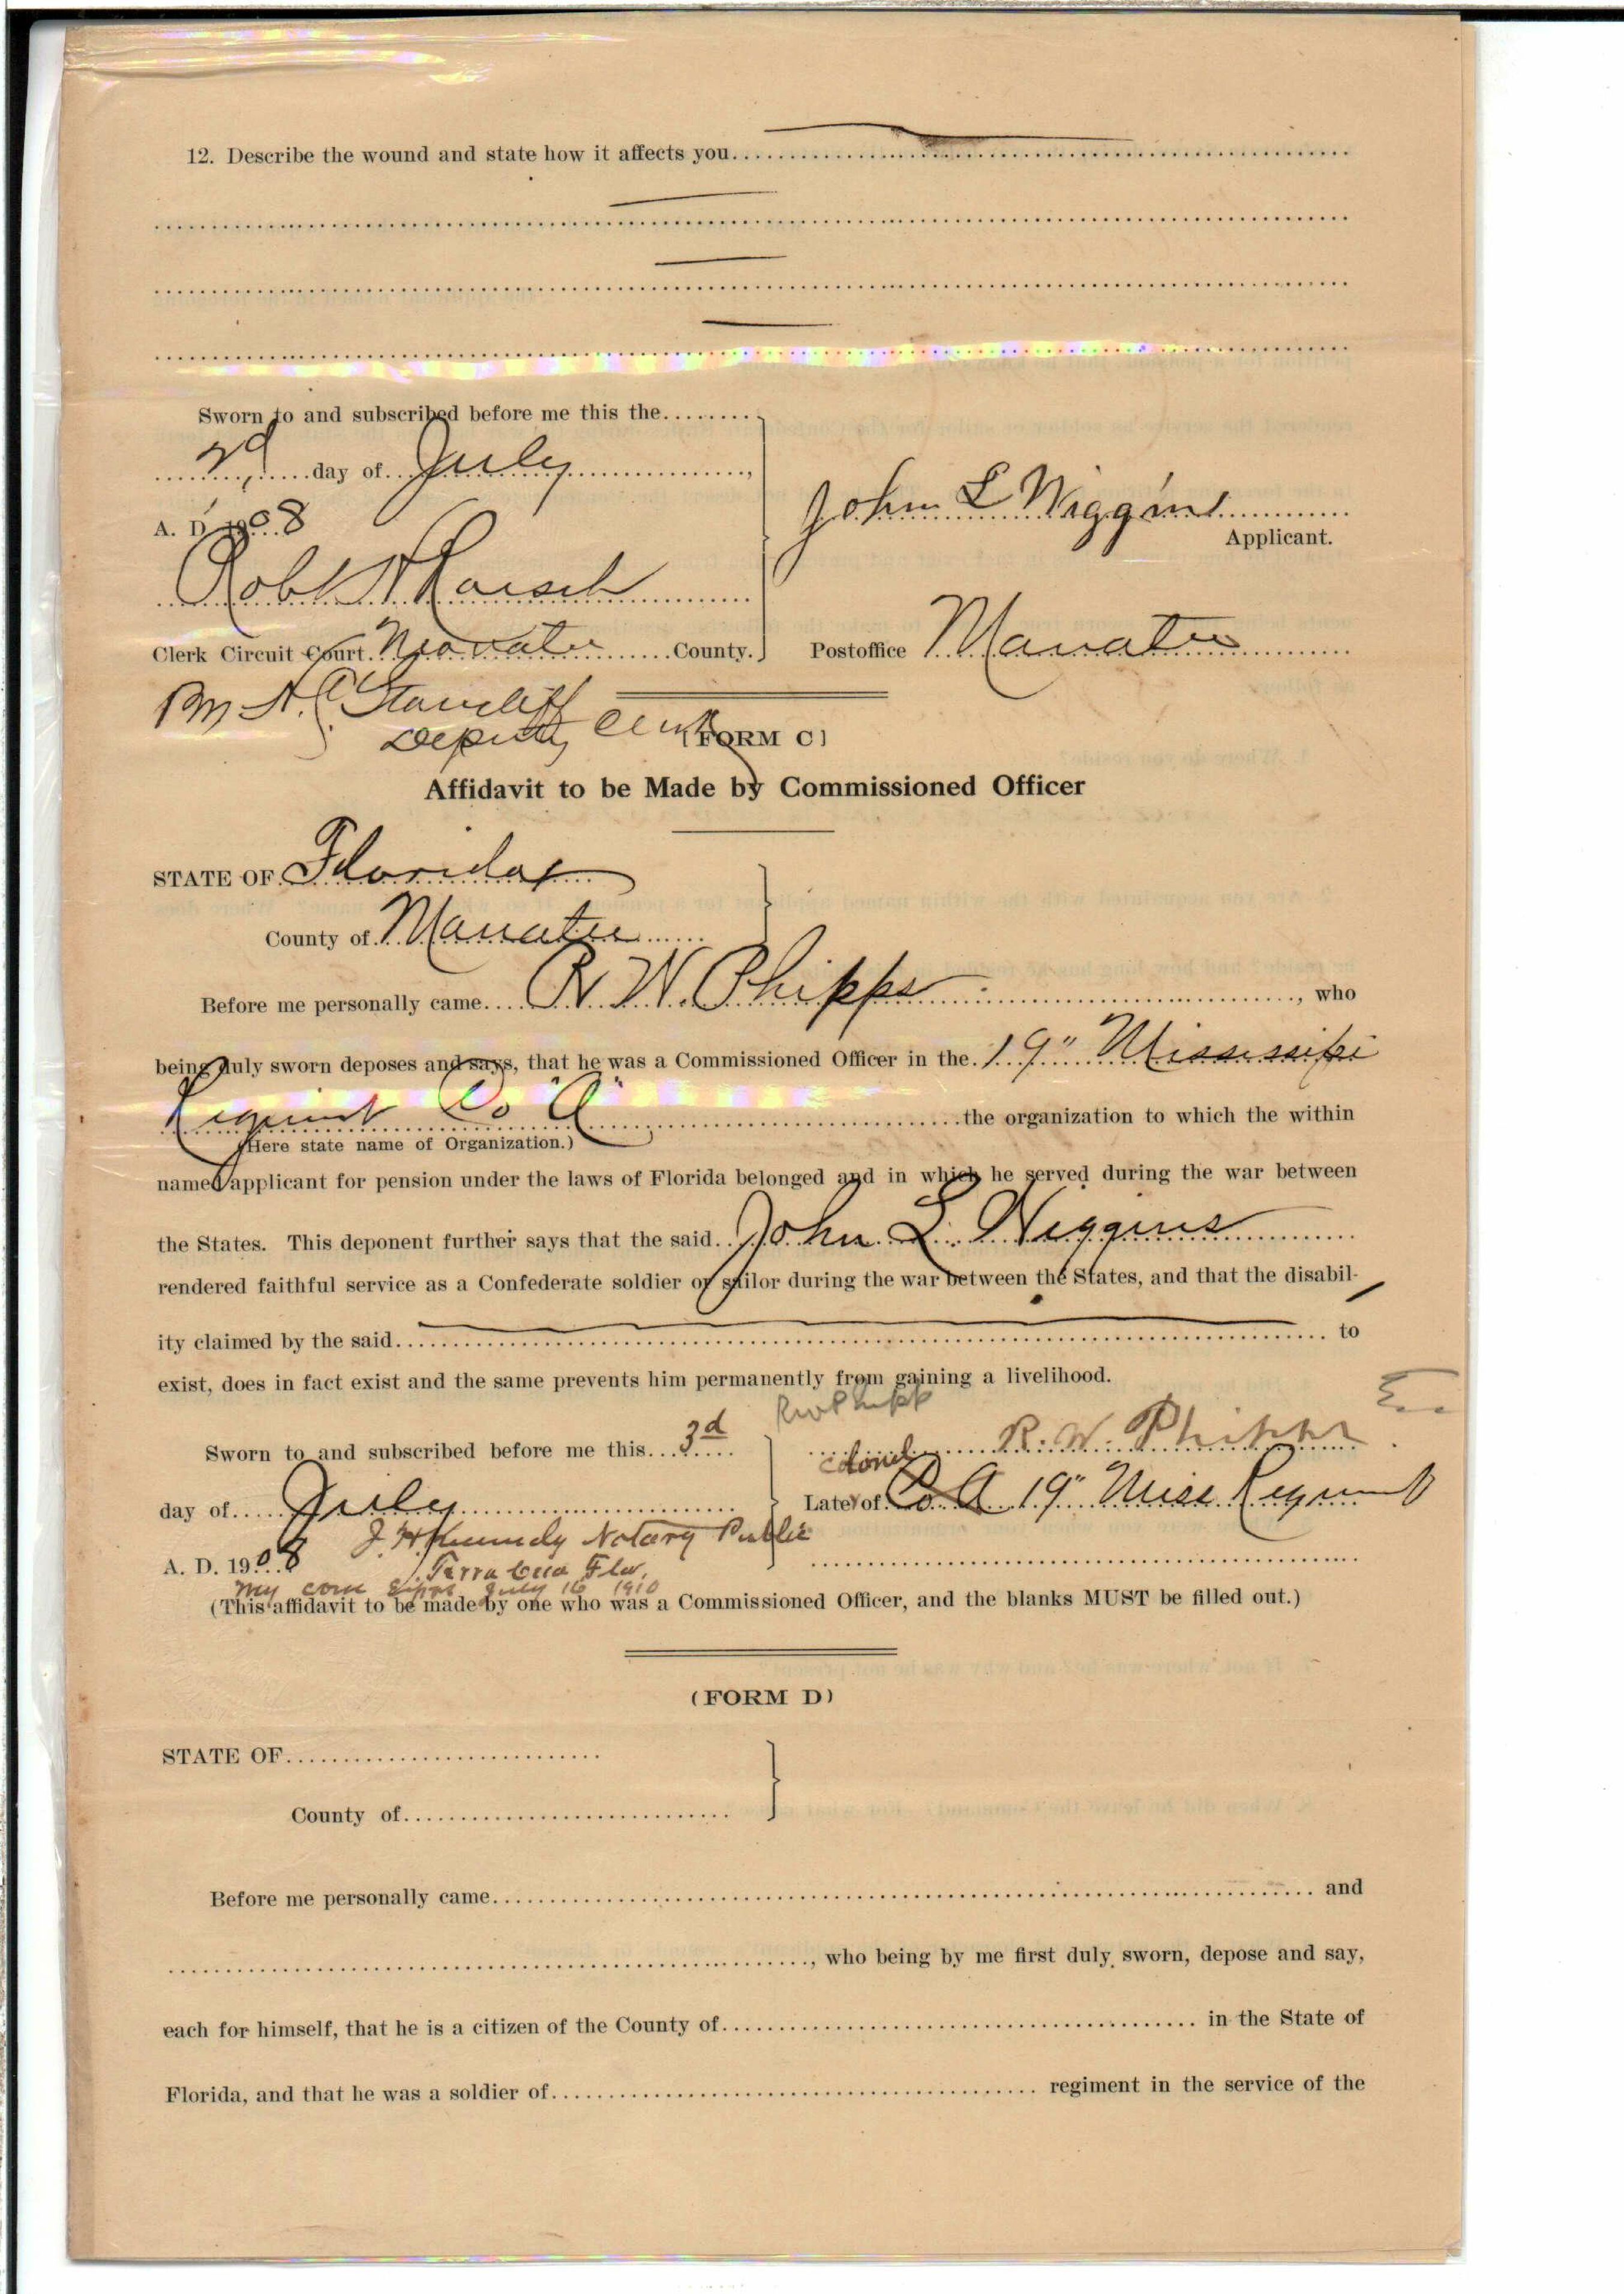 12. Describe the wound and state how it affects you
Sworn to and subscribed before me this the
2d day of July
A. D. 1908
John L Wiggins
Applicant.
Robt H Roesch
Clerk Circuit Court Manatee County. Postoffice Manatee
By A. Stancliff
Deputy Clerk
(FORM C)
Affidavit to be Made by Commissioned Officer
STATE OF Florida
County of Manatee
Before me personally came R. W. Phipps, who
being duly sworn deposes and says, that he was a Commissioned Officer in the 19" Mississippi
Regiment Co "A" the organization to which the within
(Here state name of Organization.)
named applicant for pension under the laws of Florida belonged and in which he served during the war between
the States. This deponent further says that the said John L. Wiggins
rendered faithful service as a Confederate soldier or sailor during the war between the States, and that the disabil-
ity claimed by the said to
exist, does in fact exist and the same prevents him permanently from gaining a livelihood.
RW Phipps
Sworn to and subscribed before me this 3d Colonel R. W. Phipps
day of July Late of Co A 19" Miss Regiment
J. H. Kennedy Notary Public
A. D. 1908 Terra Ceia Fla.
My com Expres July 16 1910
(This affidavit to be made by one who was a Commissioned Officer, and the blanks MUST be filled out.)
(FORM D)
STATE OF
County of
Before me personally came and
, who being by me first duly sworn, depose and say,
each for himself, that he is a citizen of the County of in the State of
Florida, and that he was a soldier of regiment in the service of the